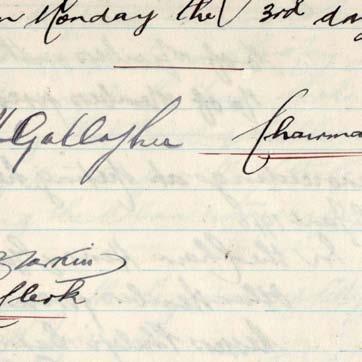 n Monday the 3rd day
Gallagher Chairma
Larkin
Clerk